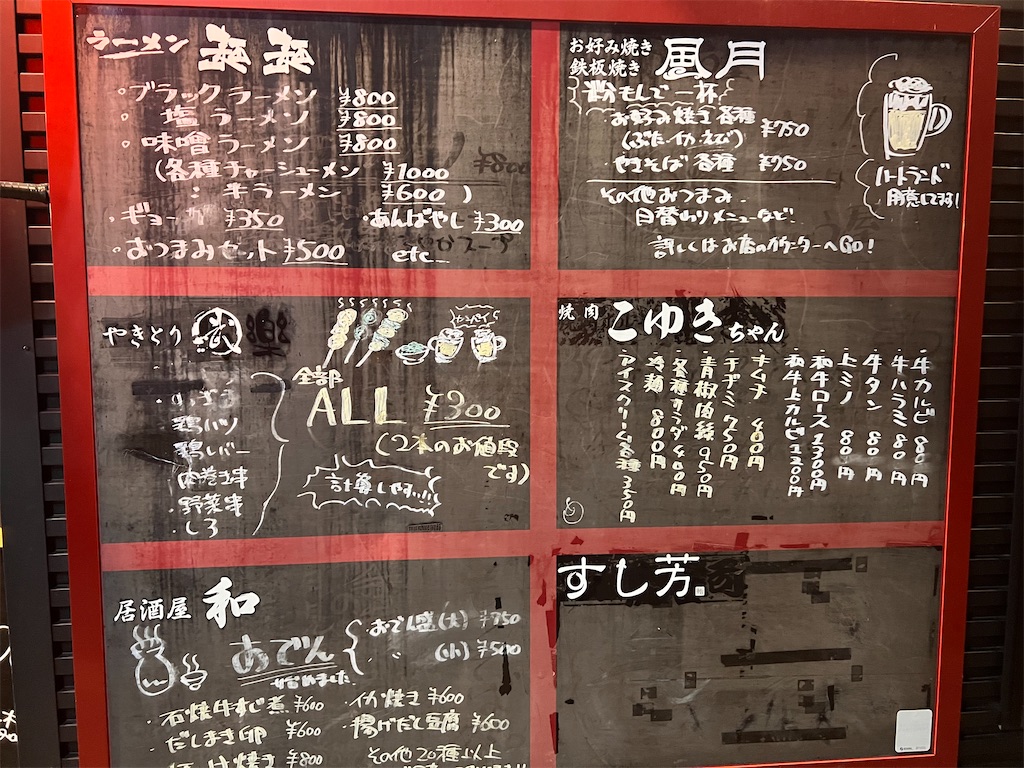 ラーメン 麺麺
・ブラックラーメン ¥800
・塩ラーメン ¥800
・味噌ラーメン ¥800
(各種チャーシューメン ¥1000
: 半ラーメン ¥600 )
・ギョーザ ¥350
・あんばやし ¥300
・おつまみセット ¥500
etc...
お好み焼き
鉄板焼き
風月
粉もんで一杯
お好み焼き各種 ¥750
(ぶた・イカ・えび)
・やきそば各種 ¥750
その他おつまみ
日替わりメニューなど!
詳しくはお店のカウンターへGO!
ハートランド
用意してます!
やきとり
全部
ALL ¥300
(2本のお値段
です)
計算しやすい!!
・鶏ハツ
・鶏レバー
・肉巻き串
・野菜串
・しろ
焼肉 こゆきちゃん
・牛カルビ 880円
・牛ハラミ 880円
・牛タン 880円
・上ミノ 880円
・和牛ロース 1300円
・和牛上カルビ 1300円
・キムチ 400円
・チヂミ 750円
・青椒肉絲 950円
・各種サラダ 400円
・冷麺 800円
・アイスクリーム各種 350円
居酒屋 和
おでん
始めました
おでん盛(大) ¥750
〃 (小) ¥500
・石焼牛すじ煮 ¥600
・イカ焼き ¥600
・だしまき卵 ¥600
・揚げだし豆腐 ¥600
焼き ¥800
その他20種以上
すし芳